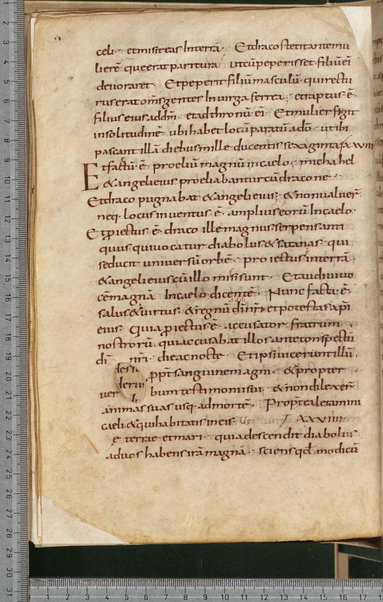 celi · et misit eas in terrā · Et draco stetit ante mu
lierē que erat paritura · ut cū peperisset filiū ei
devoraret · Et peperit filiū masculū qui rectu
rus erat om̅s gentes in virga ferrea · et raptus ē
filius eius ad dm̅ · et ad thronū ei · Et mulier fugit
in solitudinē ubi habet locū paratū a do · ut ibi
pascant illā diebus mille ducentis sexaginta xxxiii
Et factū ē proeliū magnū in caelo · michahel
& angeli eius proeliabantur cū dracone
Et draco pugnabat & angeli eius · & non valuer̄
neq locus inventus ē amplius eorū in caelo ·
Et proiectus ē draco ille magnus serpens anti
quus qui vocatur diabolus & satanas · qui
seducit universū orbē · proiectus in terrā
& angeli eius cū illo missi sunt · Et audivi vo
cē magnā in caelo dicentē · Nunc facta ē
salus & virtus · & regnū di nr̄i et potestas xp̅i
eius · Quia proiectus ē accusator fratrum
nostrorū · qui accusabat illos ante conspectū
di nr̄i · die ac nocte · Et ipsi vicerunt illū
ppt̄ sanguinem agni · & propter
ver bum testimonii sui · & non dilexer̄
animas suas usq ad mortē · Propterea letamini
caeli & qui habitatis in eis · Ve xxxiiii
ē terrae et mari · quia descendit diabolus
ad vos habens irā magnā · sciens qd̄ modicū